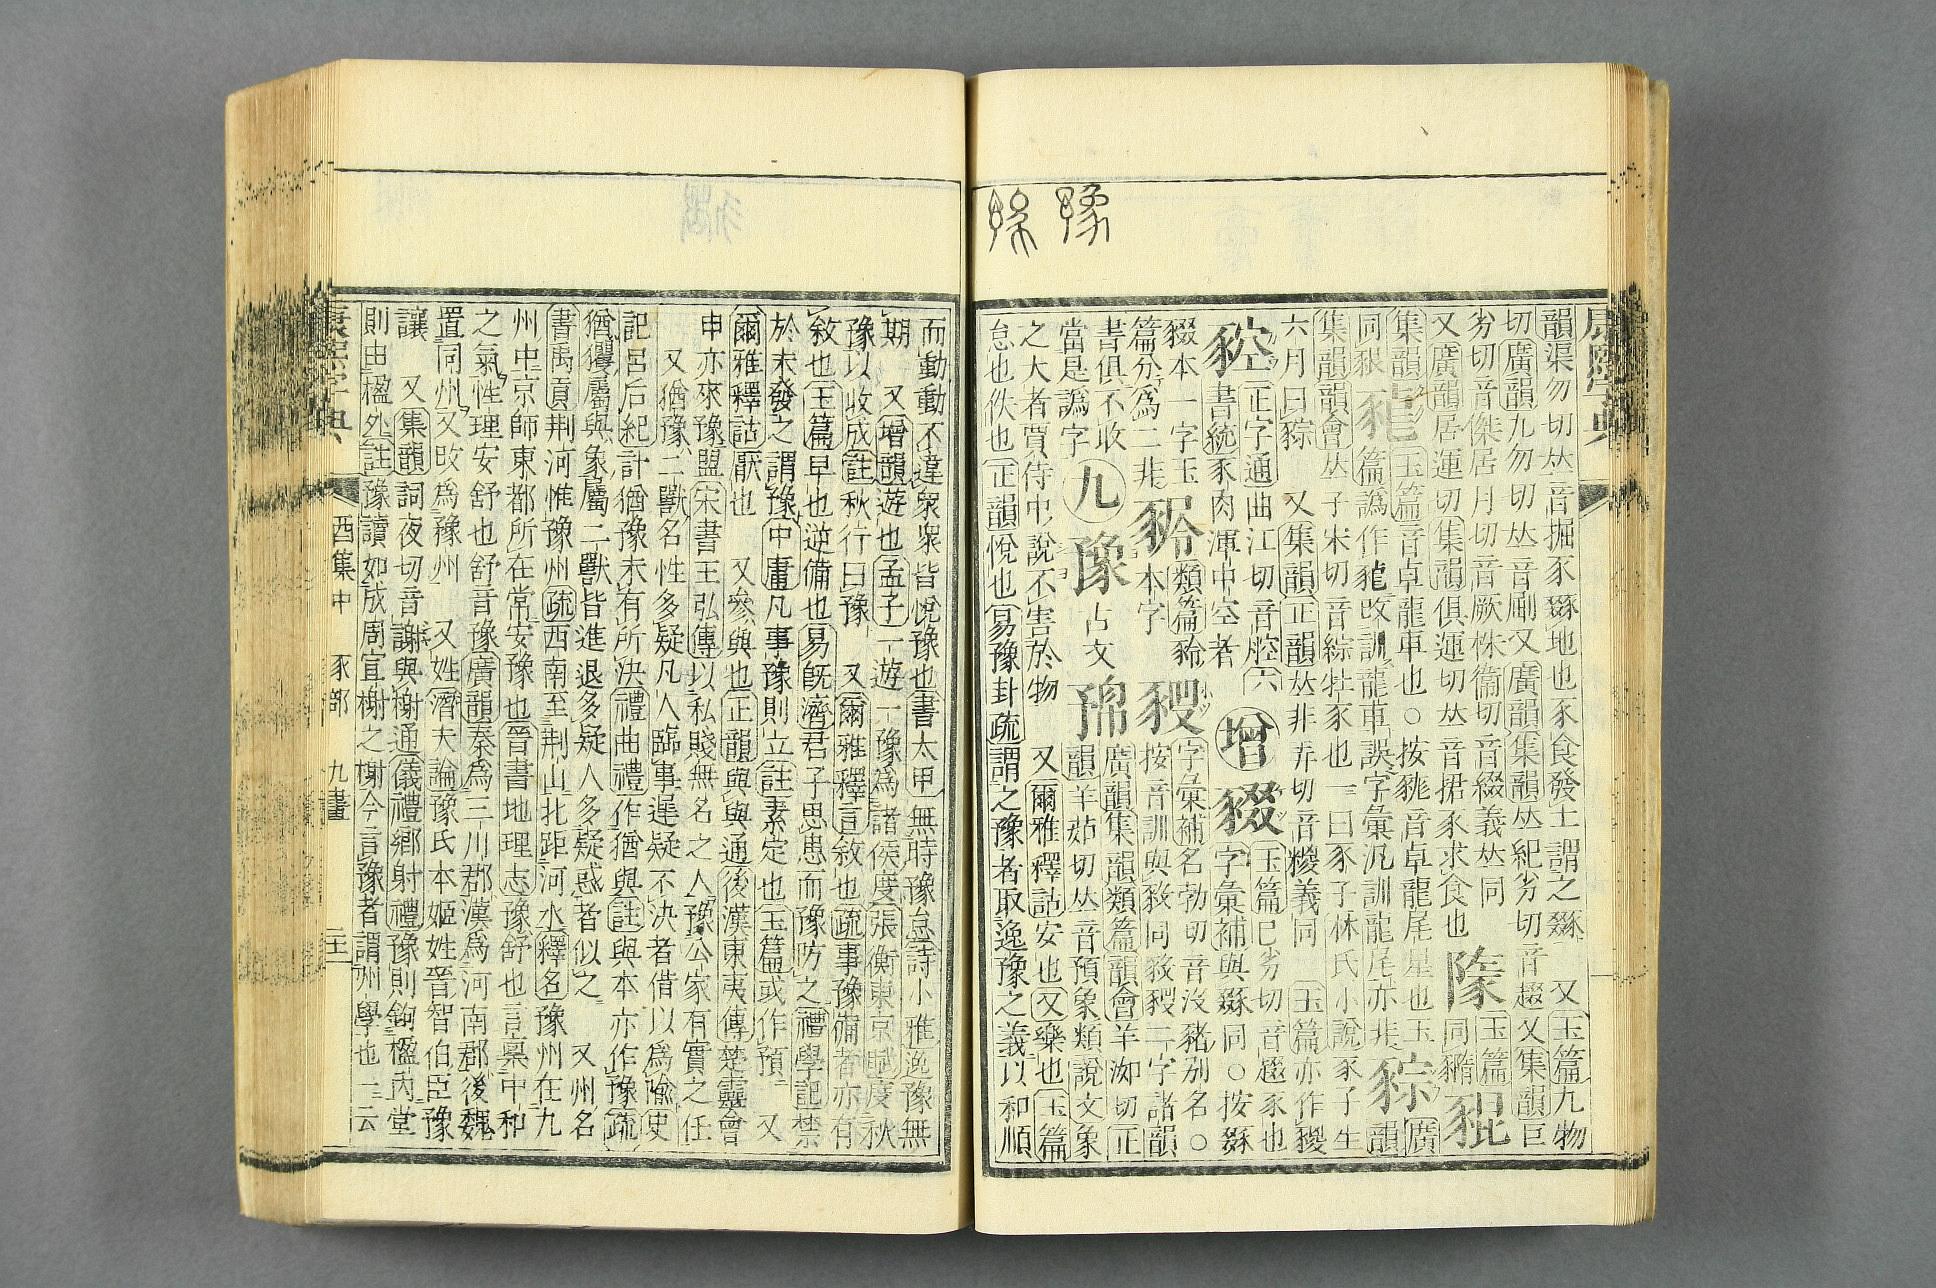 康熙字典
韻渠勿切𠀤音掘豕豩地也豕食發土謂之豩 又玉篇九物
切廣韻九勿切𠀤音刷又廣韻集韻𠀤紀劣切音蹶又集韻巨
劣切音傑居月切音厥株衞切音綴義𠀤同 玉篇
又廣韻居運切集韻俱運切𠀤音捃豕求食也 同
集韻 玉篇音卓龍車也○按音卓龍尾星也玉
同豤 篇譌作龍攺訓龍車誤字彙汎訓龍尾亦非 豵 廣韻
集韻韻會𠀤子宋切音綜牡豕也一曰豕子林氏小說豕子生
六月曰豵 又集韻正韻𠀤非弄切音㚇義同 玉篇亦作
豅 正字通曲江切音腔 六書統豕肉渾中空者
增 豩 玉篇巳劣切音蹶豕也 字彙補與同○按
本一字玉篇分爲二非 本字 類篇
字彙補名勃切音沒豬別名○按音訓與同二字諸韻書俱不收
當是譌字
九 豫 古文 廣韻集韻類篇韻會羊洳切正韻羊茹切𠀤音預象類說文象
之大者賈侍中說不害於物 又爾雅釋詁安也又樂也玉篇
怠也佚也正韻悅也易豫卦疏謂之豫者取逸豫之義以和順
而動動不違衆衆皆悅豫也書太甲無時豫怠詩小雅逸豫無
期 又增韻遊也孟子一遊一豫爲諸侯度張衡東京賦度秋
豫以收成註秋行曰豫 又爾雅釋言敘也疏事豫備者亦有
敘也玉篇早也逆備也易旣濟君子思患而豫防之禮學記禁
於未發之謂豫中庸凡事豫則立註素定也玉篇或作預 又
爾雅釋詁厭也 又參與也正韻與與通後漢東夷傳楚靈會
申亦來豫盟宋書王弘傳以私賤無名之人豫公家有實之任
又猶豫二獸名性多疑凡人臨事遲疑不決者借以爲喻史
記呂后紀計猶豫未有所決禮曲禮作猶與註與本亦作豫疏
猶玃屬與象屬二獸皆進退多疑人多疑惑者似之 又州名
書禹貢荆河惟豫州疏西南至荆山北距河水釋名豫州在九
州中京師東都所在常安豫也晉書地理志豫舒也言稟中和
之氣性理安舒也舒音豫廣韻秦爲三川郡漢爲河南郡後魏
置同州又攺爲豫州 又姓潛夫論豫氏本姬姓晉智伯臣豫
讓 又集韻詞夜切音謝與榭通儀禮鄉射禮豫則鉤楹內堂
則由楹外註豫讀如成周宣榭之榭今言豫者謂州學也一云
康熙字典 酉集中 豕部 九畫